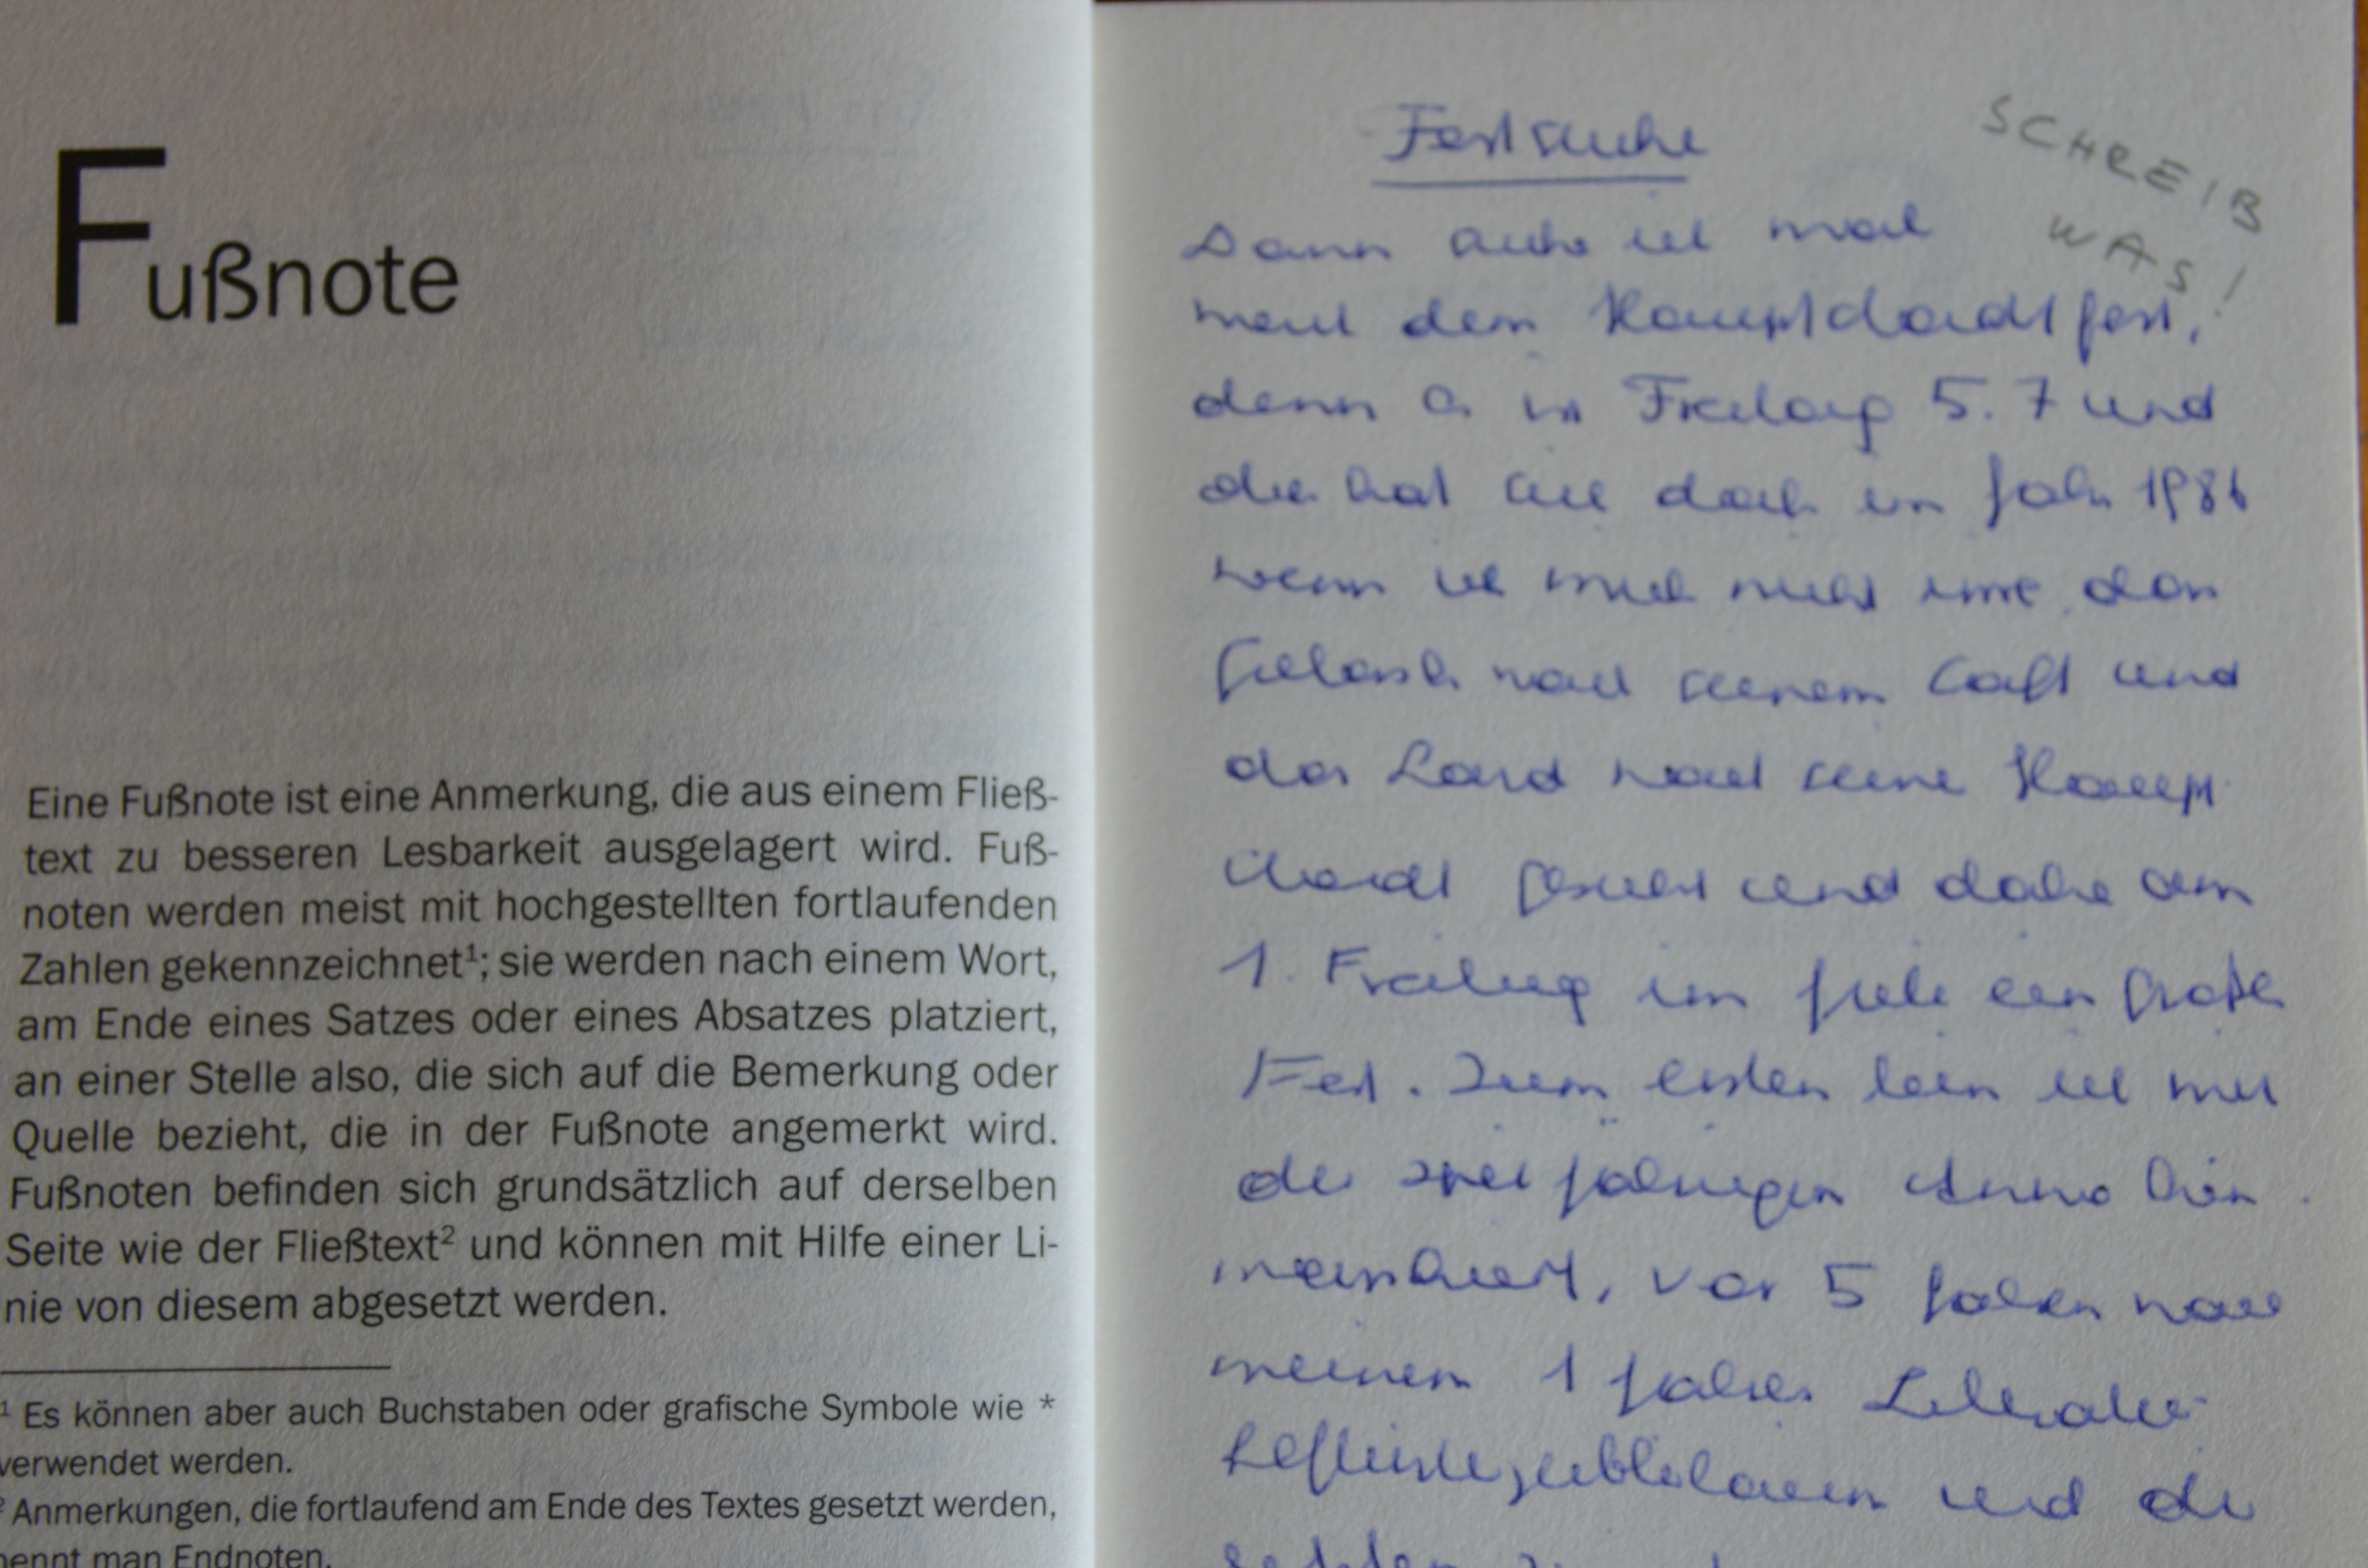 Fußnote
Eine Fußnote ist eine Anmerkung, die aus einem Fließ-
text zu besseren Lesbarkeit ausgelagert wird. Fuß-
noten werden meist mit hochgestellten fortlaufenden
Zahlen gekennzeichnet¹; sie werden nach einem Wort,
am Ende eines Satzes oder eines Absatzes platziert,
an einer Stelle also, die sich auf die Bemerkung oder
Quelle bezieht, die in der Fußnote angemerkt wird.
Fußnoten befinden sich grundsätzlich auf derselben
Seite wie der Fließtext² und können mit Hilfe einer Li-
nie von diesem abgesetzt werden.
¹ Es können aber auch Buchstaben oder grafische Symbole wie *
verwendet werden.
² Anmerkungen, die fortlaufend am Ende des Textes gesetzt werden,
nennt man Endnoten.
SCHREIB
WAS!
Festsuche
Dann suche ich mal
nach dem Hauptstadtfest,
denn es ist Freitag 5. 7 und
da hat sich doch im Jahr 1986
wenn ich mich nicht irre das
nach seinem und
das Land nach seine Haupt
stadt gesucht und dabei am
1. Freitag im Juli ein großes
Fest. Zum ersten bin ich mit
der zweijährigen Anna hin
marschiert, vor 5 Jahren nach
meinem 1 Jahres
und die